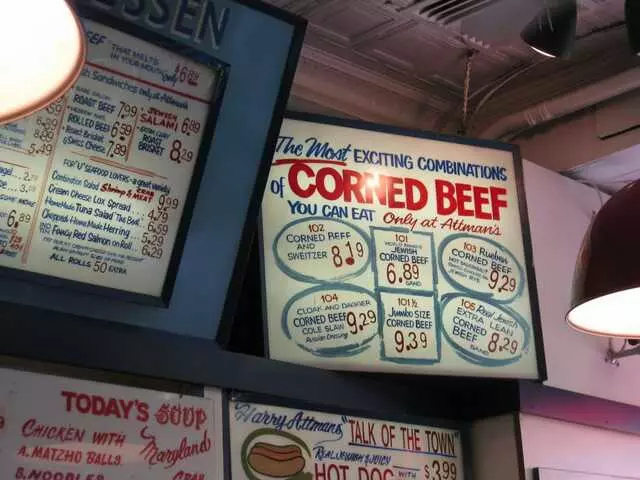 SSEN
"THAT MELTS
IN YOUR MOUTH" Only $6.89
Sandwiches only at Attman's
ROAST BEEF 7.99
ROLLED BEEF 6.99
Roast Brisket
& Swiss Cheese 7.89
JEWISH
SALAMI 6.89
EXTRA LEAN
ROAST
BRISKET 8.29
FOR "U" SEAFOOD LOVERS - a great variety
Combination Salad Shrimp & MEAT CRAB 9.99
Cream Cheese Lox Spread 4.79
Home Made Tuna Salad The Best 6.59
Chopped Home Made Herring 5.29
Fancy Red Salmon on Roll 6.29
ALL ROLLS 50 EXTRA
The Most EXCITING COMBINATIONS
of CORNED BEEF
YOU CAN EAT Only at Attman's
102
CORNED BEEF
AND
SWEITZER 8.19
101
WORLD FAMOUS
JEWISH
CORNED BEEF
6.89
SAND.
103 Rueben
CORNED BEEF
HOT SAUERKRAUT
JEWISH RYE
9.29
104
CLOAK AND DAGGER
CORNED BEEF
COLE SLAW
Russian Dressing
9.29
101½
Jumbo SIZE
CORNED BEEF
9.39
105 Real Jewish
EXTRA LEAN
CORNED
BEEF
SAND.
8.29
TODAY'S SOUP
CHICKEN WITH
A. MATZHO BALLS.
B. NOODLES
Maryland
CRAB
Harry Attman's "TALK OF THE TOWN"
REAL JEWISH & JUICY
HOT DOG WITH $3.99